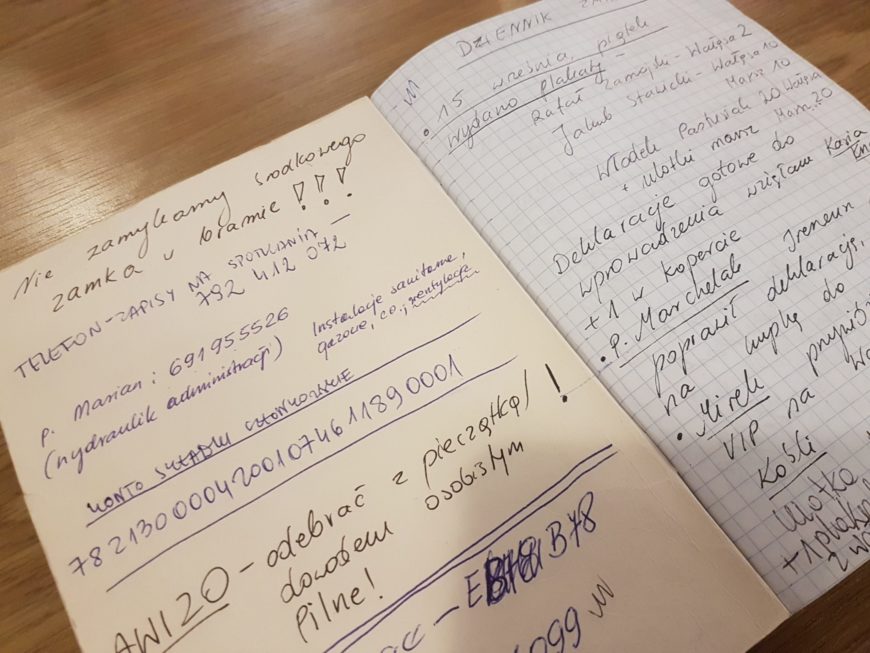 Nie zamykamy środkowego
zamka w bramie !!!
TELEFON-ZAPISY NA SPOTKANIA -
792 412 072
P. Marian: 691955526
(hydraulik administracji)
Instalacje sanitarne,
gazowe, c.o., wentylacje
KONTO SKŁADKI CZŁONKOWSKIE
78213000042001074611890001
AWIZO - odebrać z pieczątką i !
dowodem osobistym
Pilne!
B78
099
DZIENNIK
• 15 września, piątek
wydano plakaty -
Rafał Zamojski - Wałęsa 2
Jakub Stawicki - Wałęsa 10
Marsz 10
Włodek Pastusiak 20 Wałęsa
+ ulotki marsz Marsz 20
Deklaracje gotowe do
wprowadzenia wzięłam Kasia
+ 1 w kopercie
• P. Marchelak Ireneusz
poprawił deklarację,
na kupkę do
• Mirek
VIP na
Kośli
ulotka
+ 1 plakat
2